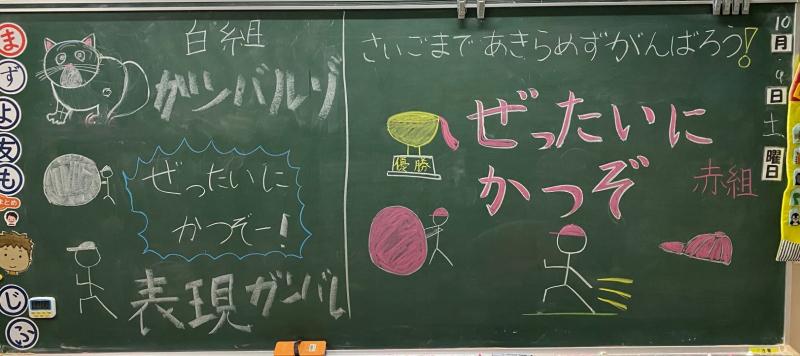 白組
ガンバルゾ
ぜったいに
かつぞー!
表現ガンバル
さいごまであきらめずがんばろう!
優勝
ぜったいに
かつぞ
赤組
10
月
9
日
土
曜日
ま
ず
よ
友
も
まとめ
じ
ふ